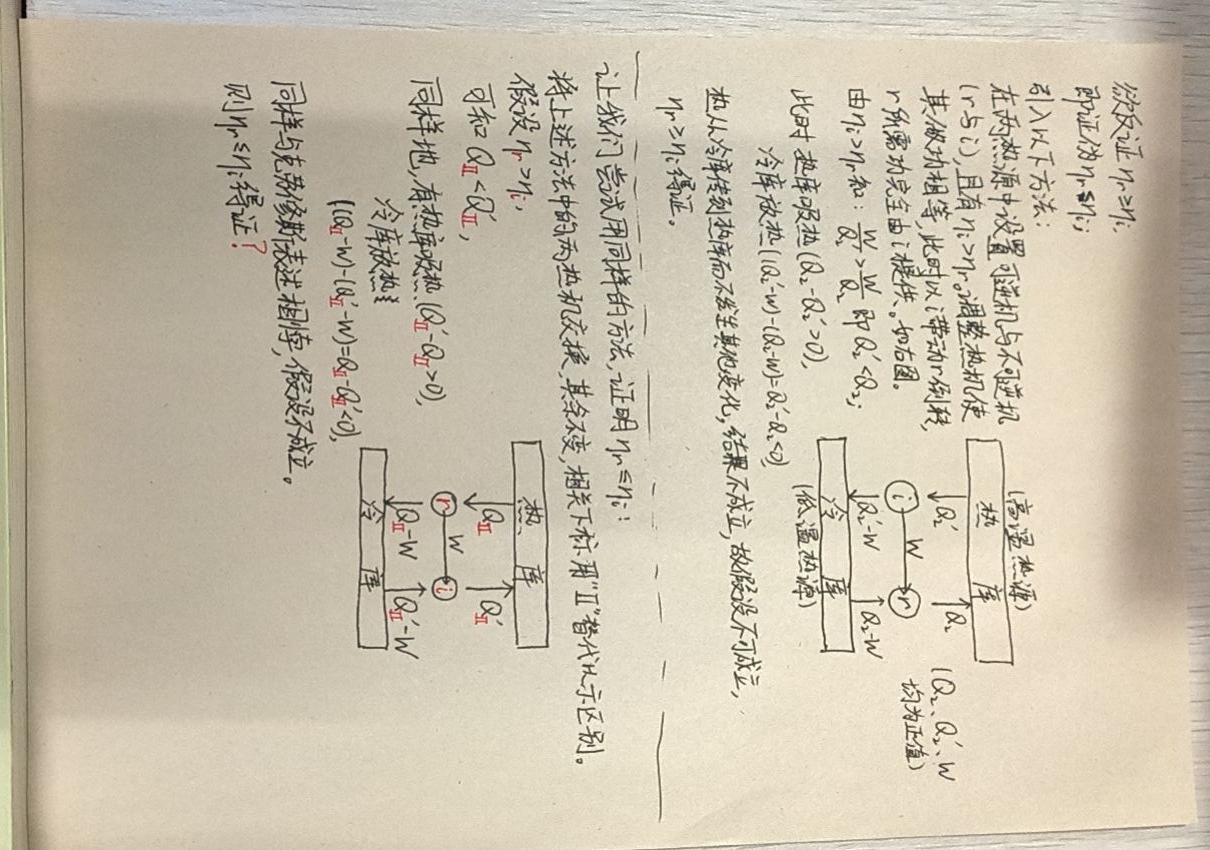 欲反证 ηr≥ηi,
即证伪 ηr≤ηi;
引入以下方法:
在两热源中设置可逆机与不可逆机
(r与i),且有ηi>ηr。调整热机使
其做功相等,此时以i带动r倒转,
r所需功完全由i提供。如右图。
由ηi>ηr知: W/Q₂' > W/Q₂ 即 Q₂'<Q₂;
此时 热库吸热(Q₂-Q₂'>0),
冷库放热((Q₂'-W)-(Q₂-W)=Q₂'-Q₂<0)
热从冷库传到热库而不发生其他变化,结果不成立,故假设不可成立,
ηr≥ηi得证。
(高温热源)
热 库
Q₂' Q₂
i W r
Q₂'-W Q₂-W
冷 库
(低温热源)
(Q₂、Q₂'、W
均为正值)
让我们尝试用同样的方法,证明 ηr≤ηi:
将上述方法中的两热机交换,其余不变,相关下标用"Ⅱ"替代以示区别。
假设 ηr>ηi,
可知 QⅡ<QⅡ',
同样地,有热库吸热(QⅡ'-QⅡ>0),
冷库放热
((QⅡ-W)-(QⅡ'-W)=QⅡ-QⅡ'<0),
同样与克劳修斯表述相悖,假设不成立。
则ηr≤ηi得证?
热 库
QⅡ QⅡ'
r W i
QⅡ-W QⅡ'-W
冷 库